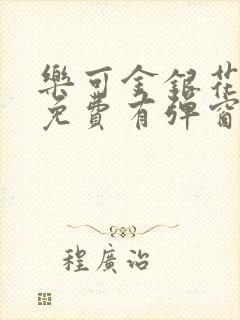 樂可金銀花
免費有彈窗
程廣治